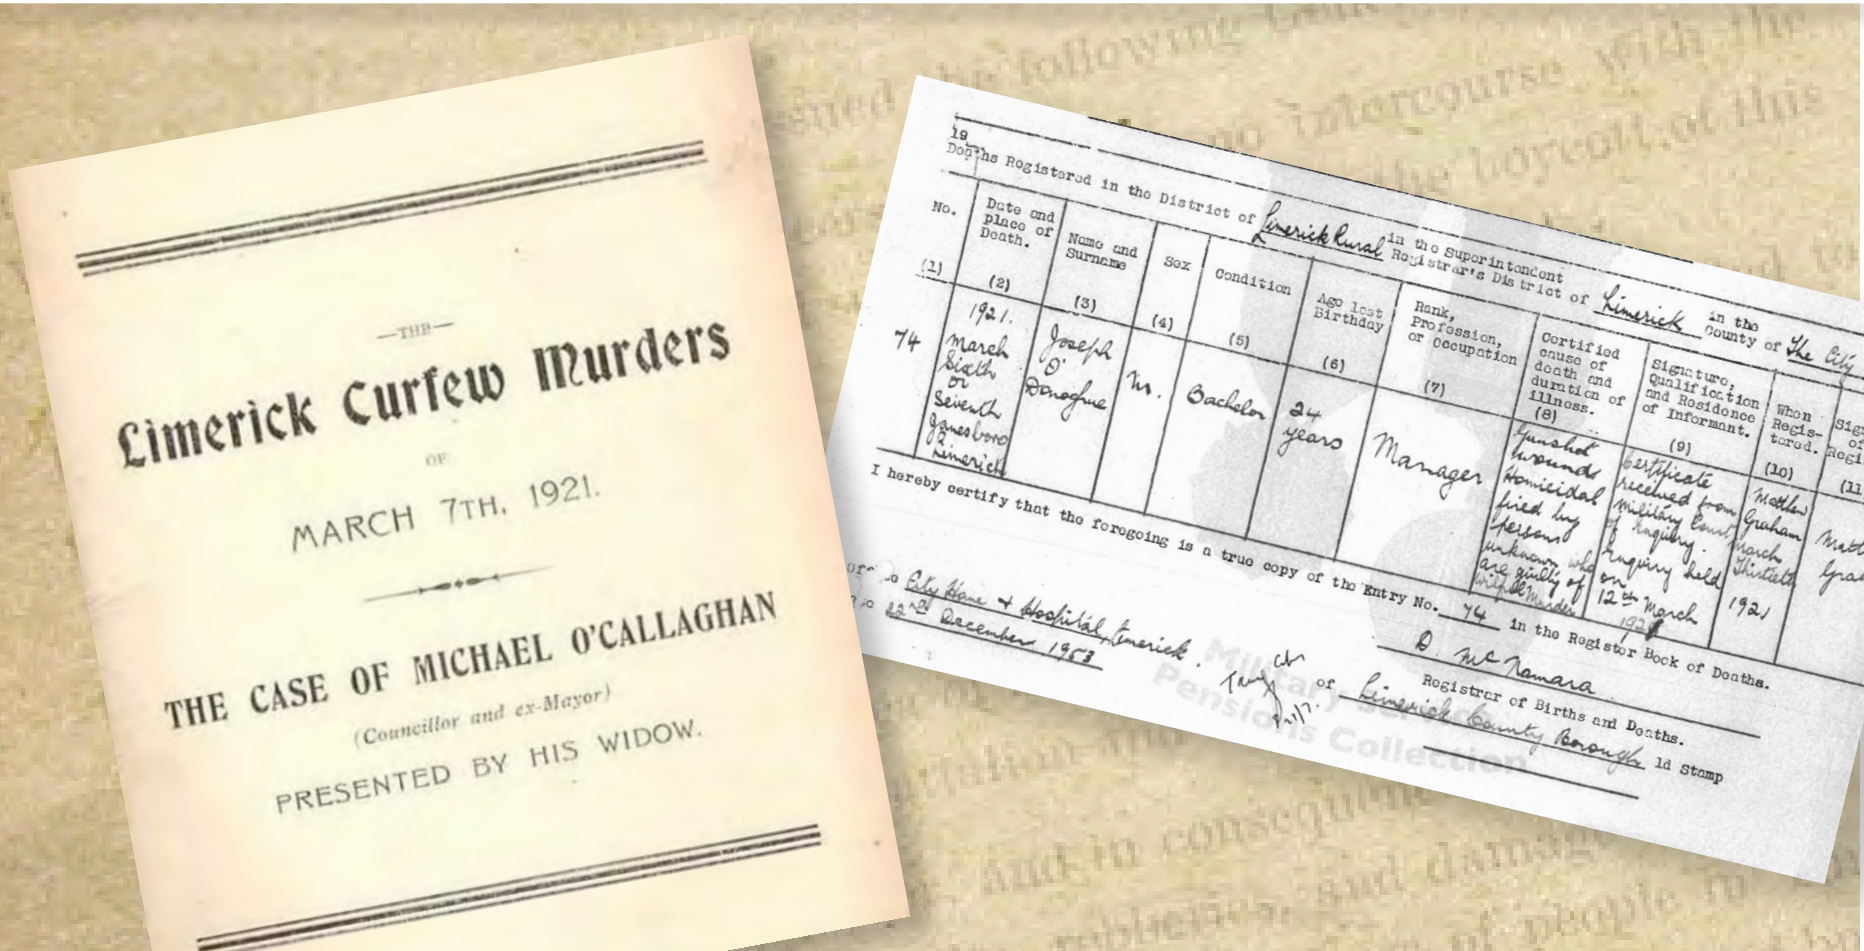 —THE—
Limerick Curfew Murders
OF
MARCH 7TH, 1921.
THE CASE OF MICHAEL O'CALLAGHAN
(Councillor and ex-Mayor)
PRESENTED BY HIS WIDOW.
19
Deaths Registered in the District of Limerick Rural in the Superintendent Registrar's District of Limerick in the County of The City
No.
(1)
Date and
place of
Death.
(2)
Name and
Surname
(3)
Sex
(4)
Condition
(5)
Age last
Birthday
(6)
Rank,
Profession,
or occupation
(7)
Certified
cause of
death and
duration of
illness.
(8)
Signature,
Qualification
and Residence
of Informant.
(9)
When
Regis-
tered.
(10)
(11
74
1921.
March
Sixth
or
Seventh
Janesboro
Limerick
Joseph
O'
Donoghue
M.
Bachelor
24
years
Manager
Gunshot
wounds
Homicidal
fired by
persons
unknown, who
are guilty of
wilful Murder
Certificate
received from
Military Court
of Enquiry.
Enquiry held
on
12th March
1921
Matthew
Graham
March
Thirtieth
1921
I hereby certify that the foregoing is a true copy of the Entry No. 74 in the Register Book of Deaths.
City Home & Hospital, Limerick.
22nd December 1953
D. McNamara
Registrar of Births and Deaths.
of Limerick County Borough 1d Stamp
Military Service
Pensions Collection
following
no intercourse with the
the boycott of this
and in consequence
robberies, and damage
of people in